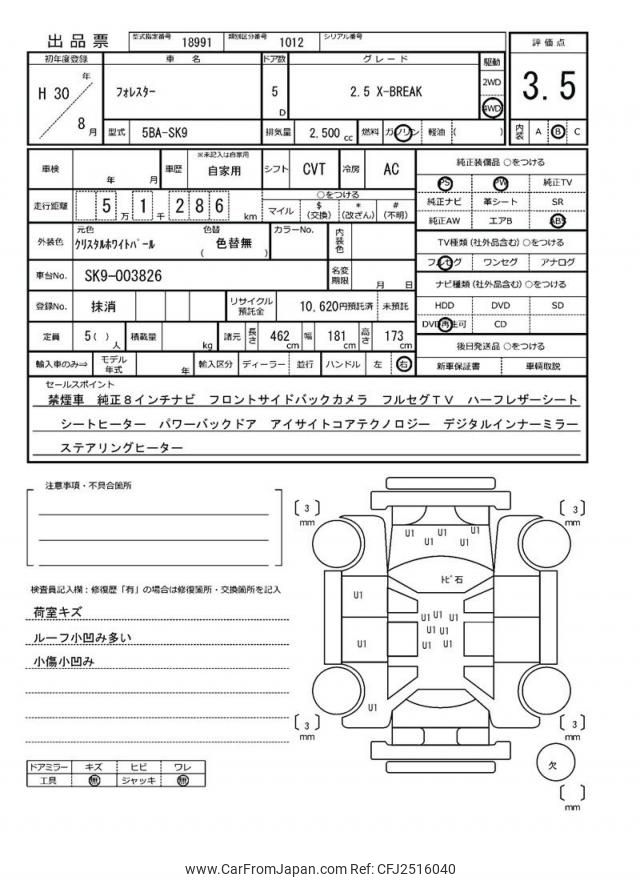 出品票 型式指定番号 18991 類別区分番号 1012 シリアル番号
初年度登録 車 名 ドア数 グレード 駆動 評価点
H 30 年 フォレスター 5 D 2.5 X-BREAK 2WD 4WD 3.5
8 月 型式 5BA-SK9 排気量 2,500 cc 燃料 ガソリン 軽油 ( ) 内装 A B C
車検 年 月 車歴 ※未記入は自家用 自家用 シフト CVT 冷房 AC 純正装備品 ○をつける
PS PW 純正TV
走行距離 5 万 1 千 2 8 6 km ○をつける 純正ナビ 革シート SR
マイル $ (交換) * (改ざん) # (不明) 純正AW エアB ABS
外装色 元色 クリスタルホワイトパール 色替 色替無 ( ) カラーNo. 内装色 TV種類 (社外品含む) ○をつける
フルセグ ワンセグ アナログ
車台No. SK9-003826 名変期限 月 日 ナビ種類 (社外品含む) ○をつける
登録No. 抹消 リサイクル預託金 10,620円預託済 未預託 HDD DVD SD
DVD再生可 CD
定員 5 ( ) 人 積載量 kg 諸元 長さ 462 cm 幅 181 cm 高さ 173 cm 後日発送品 ○をつける
輸入車のみ⇒ モデル年式 年 輸入区分 ディーラー 並行 ハンドル 左 右 新車保証書 車輌取説
セールスポイント
禁煙車 純正8インチナビ フロントサイドバックカメラ フルセグTV ハーフレザーシート
シートヒーター パワーバックドア アイサイトコアテクノロジー デジタルインナーミラー
ステアリングヒーター
注意事項・不具合箇所
検査員記入欄:修復歴「有」の場合は修復箇所・交換箇所を記入
荷室キズ
ルーフ小凹み多い
小傷小凹み
ドアミラー キズ ヒビ ワレ
工具 無 ジャッキ 無
[ 3 ] mm [ 3 ] mm
U1 U1 U1 U1 U1
トビ石
U1 U1 U1 U1 U1 U1 U1 U1
U1
U1
U1
[ 3 ] mm [ 3 ] mm
欠
[ ] mm
www.CarFromJapan.com Ref: CFJ2516040